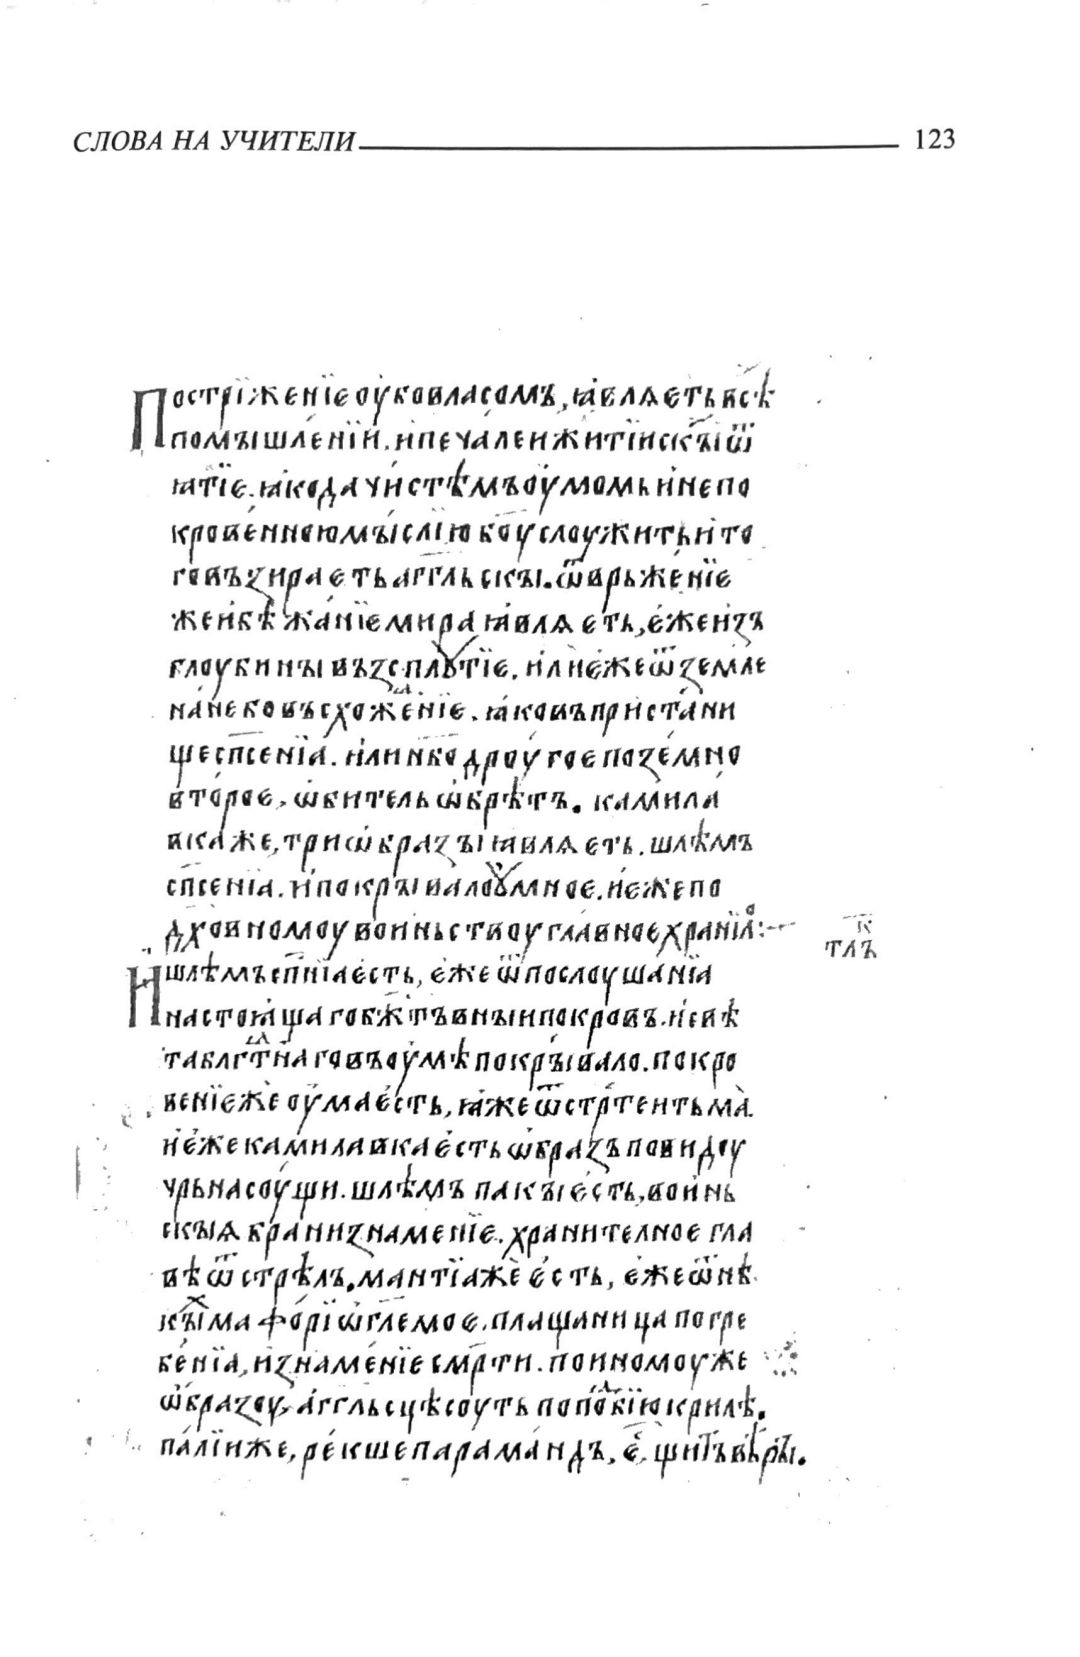 СЛОВА НА УЧИТЕЛИ 123
Пострїженїе оуко власомъ, ꙗвлꙗеть всѣ
помышленїи. и печален житїискꙑ ѿ
ѩтїе. ꙗко да чистѣмъ оумомь и непо
кровенною мыслїю б҃оу слоужить и то
го възираеть аг҃гльскы. ѿврьженїе
же и бѣжанїе мира ꙗвлꙗеть, еже изъ
глоубины възсплꙋтїе. или еже ѿ земле
на небо въсхожⷣенїе. ꙗко въ приста́ни
ще сп҃сенїа. или ꙗко дроугое по земно
второе, ѡбитель ѡбрѣтъ. камила
вка же, три ѡбразы ꙗвлꙗеть. шлѣмъ
сп҃сенїа. и покрывало ꙋмное. и еже по
дх҃овномоу воиньствоу главное хранїлⷪ:
к҃
тлъ
И шлѣмъ сп҃нїа есть, еже ѿ послоушанїа
настоѩщаго бж҃тъвныи покровъ. и свѣ
та блгⷣтнаго въ оумѣ покрывало. покро
венїе же оума есть, ꙗже ѿ стр҃тен тьма.
и еже камилавка есть ѡбразъ по видоу
чрьна соущи. шлѣмъ пакы есть, воинь
скыѧ брани знаменїе. хранителное гла
вѣ ѿ стрѣлъ. мантїа же есть, еже ѿ нѣ
кыⷯ мафорїѡ гл҃емое. плащаница погре
бенїа, и знаменїе смр҃ти. по иномоу же
ѡбразоу, аг҃гльсцѣ соуть по поⷣбїю крилѣ.
палїи же, рекше парамандъ, е҃, щитъ вѣры.